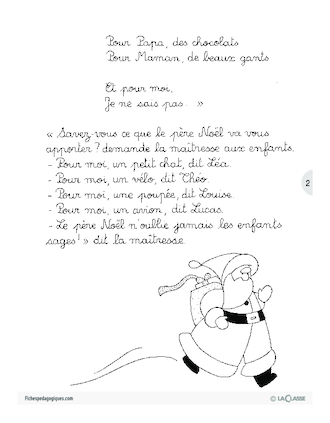 Pour Papa, des chocolats
Pour Maman, de beaux gants
Et pour moi,
Je ne sais pas. »
« Savez-vous ce que le père Noël va vous
apporter ? demande la maîtresse aux enfants.
- Pour moi, un petit chat, dit Léa.
- Pour moi, un vélo, dit Théo.
- Pour moi, une poupée, dit Louise.
- Pour moi, un avion, dit Lucas.
- Le père Noël n'oublie jamais les enfants
sages ! » dit la maîtresse.
2
Fichespedagogiques.com
© LACLASSE